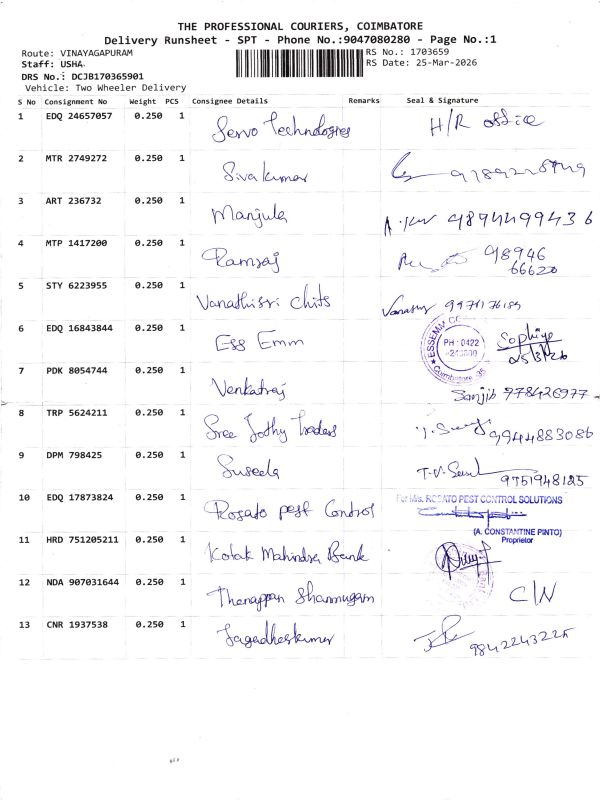 THE PROFESSIONAL COURIERS, COIMBATORE
Delivery Runsheet - SPT - Phone No.:9047080280 - Page No.:1
Route: VINAYAGAPURAM
Staff: USHA
DRS No.: DCJB170365901
Vehicle: Two Wheeler Delivery
RS No.: 1703659
RS Date: 25-Mar-2026
S No Consignment No Weight PCS Consignee Details Remarks Seal & Signature
1 EDQ 24657057 0.250 1 Servo Technologies H/R office
2 MTR 2749272 0.250 1 Sivakumar
3 ART 236732 0.250 1 Manjula 9894499436
4 MTP 1417200 0.250 1 Ramraj 98946
66620
5 STY 6223955 0.250 1 Vanathisri chits
6 EDQ 16843844 0.250 1 Ess Emm ESSEMM PH : 0422 Coimbatore 35 Sophiya
25/3/26
7 PDK 8054744 0.250 1 Venkatraj Sanjib 978426977
8 TRP 5624211 0.250 1 Sree Jothy Traders 9944883086
9 DPM 798425 0.250 1 Suseela 9751948125
10 EDQ 17873824 0.250 1 Rosato pest Control For M/s. ROSATO PEST CONTROL SOLUTIONS
(A. CONSTANTINE PINTO)
Proprietor
11 HRD 751205211 0.250 1 Kotak Mahindra Bank
12 NDA 907031644 0.250 1 Thenappan Shanmugam C/N
13 CNR 1937538 0.250 1 Jagadheskumar 9842243225